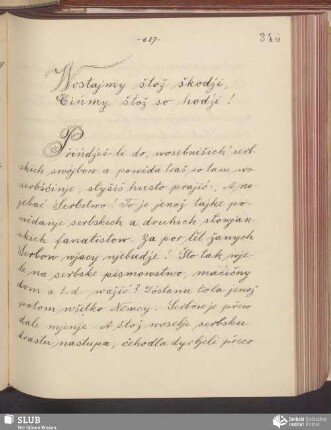 -687-
346
Wostajmy štož škodźi,
Čińmy štož so hodźi!
Přińdźeš-li do "wosebnišich" serb-
skich swójbow a powěda traš so tam wo
serbšćinje, slyšiš husto prajić: A, na-
jebać Serbstwo! To je jenož tajke po-
wědanje serbskich a druhich słowjan-
skich fanatistow. Za por lět žanych
Serbow wjacy njebudźe! Što tak wje-
le na serbske pismowstwo, maćičny
dom a t. d. ważić? Zostanu tola jenož
potom wšitko Němcy. Serbow je přeco
dale mjenje. A štož woselje serbsku
drastu nastupa, čehodla dyrbjeli přeco
SLUB
Wir führen Wissen.
Serbski institut
Sorbisches Institut